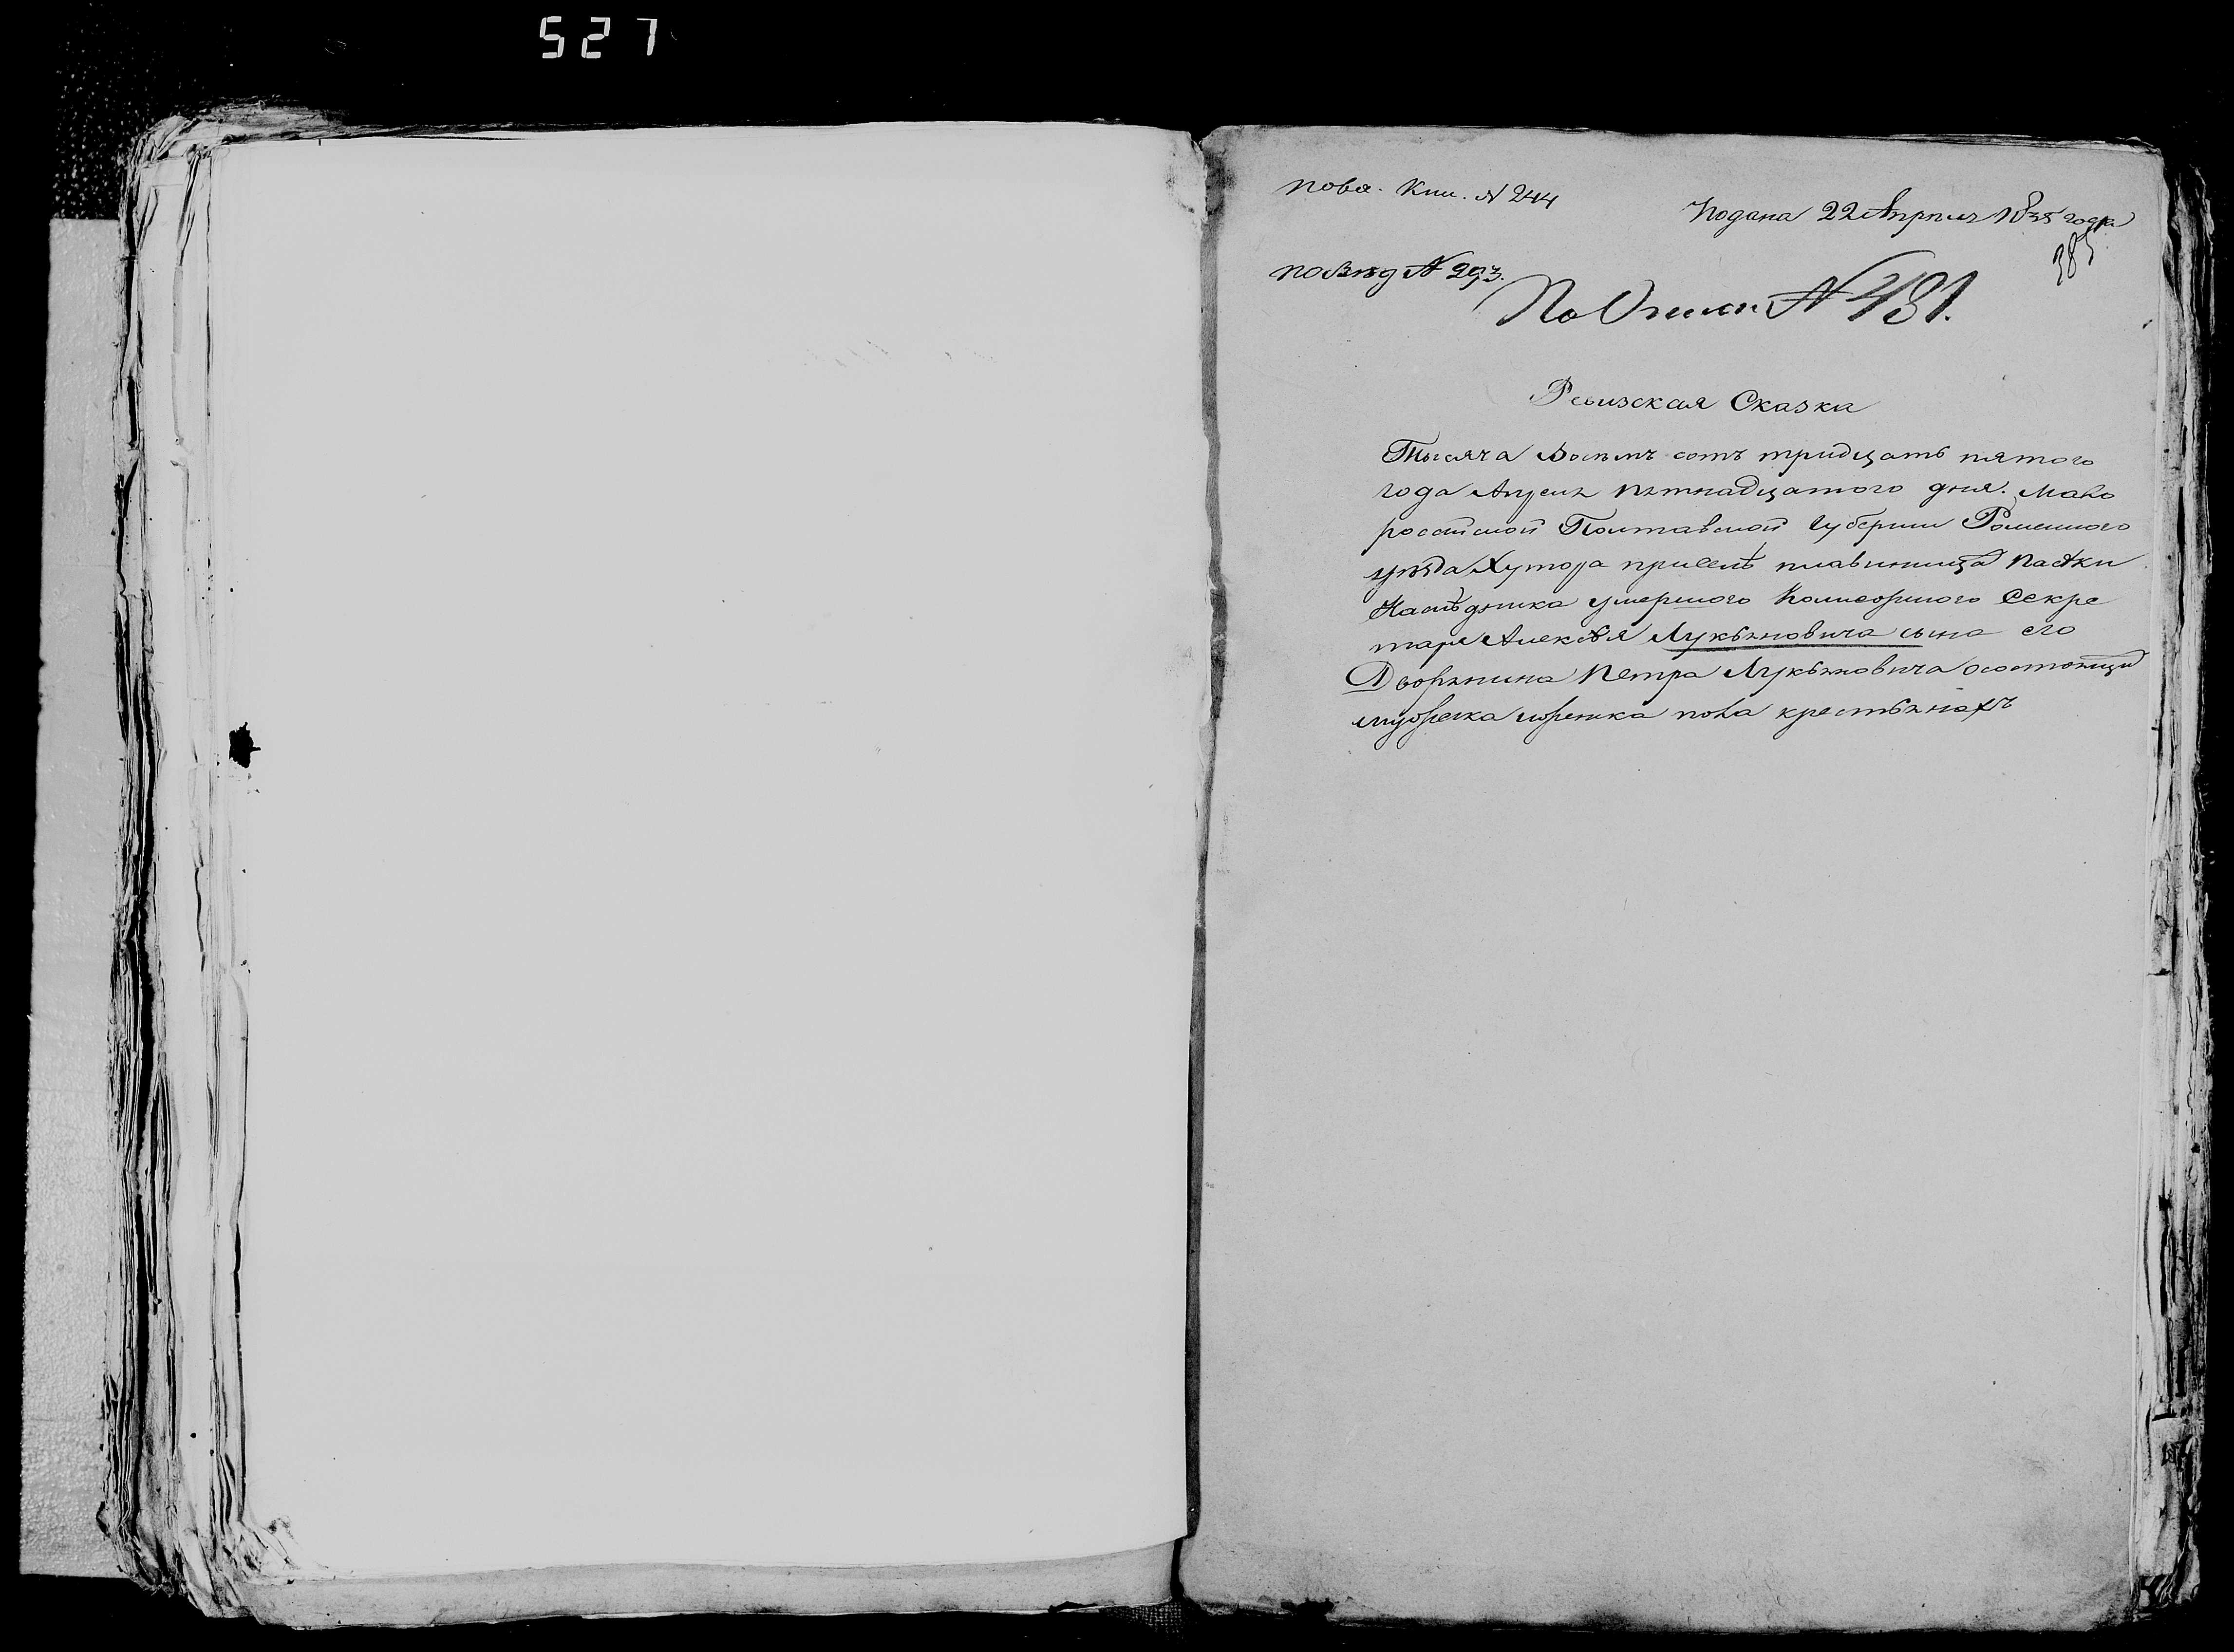 527
по ал. Кни. № 244
Подана 22 Апреля 1835 года
385
по Вѣд № 293.
По Описи № 431.
Ревизская Сказка
Тысяча Восемь сотъ тридцать пятого
года Апреля пятнадцатого дня. Мало
российской Полтавской Губернии Роменного
уѣзда Хутора при селѣ плавинища
Наслѣдника умершого Колисорного Секре
таря Алексѣя Лукьяновича сына его
Дворянина Петра Лукьяновича о состоящи
мужеска и женска пола крестьянахъ